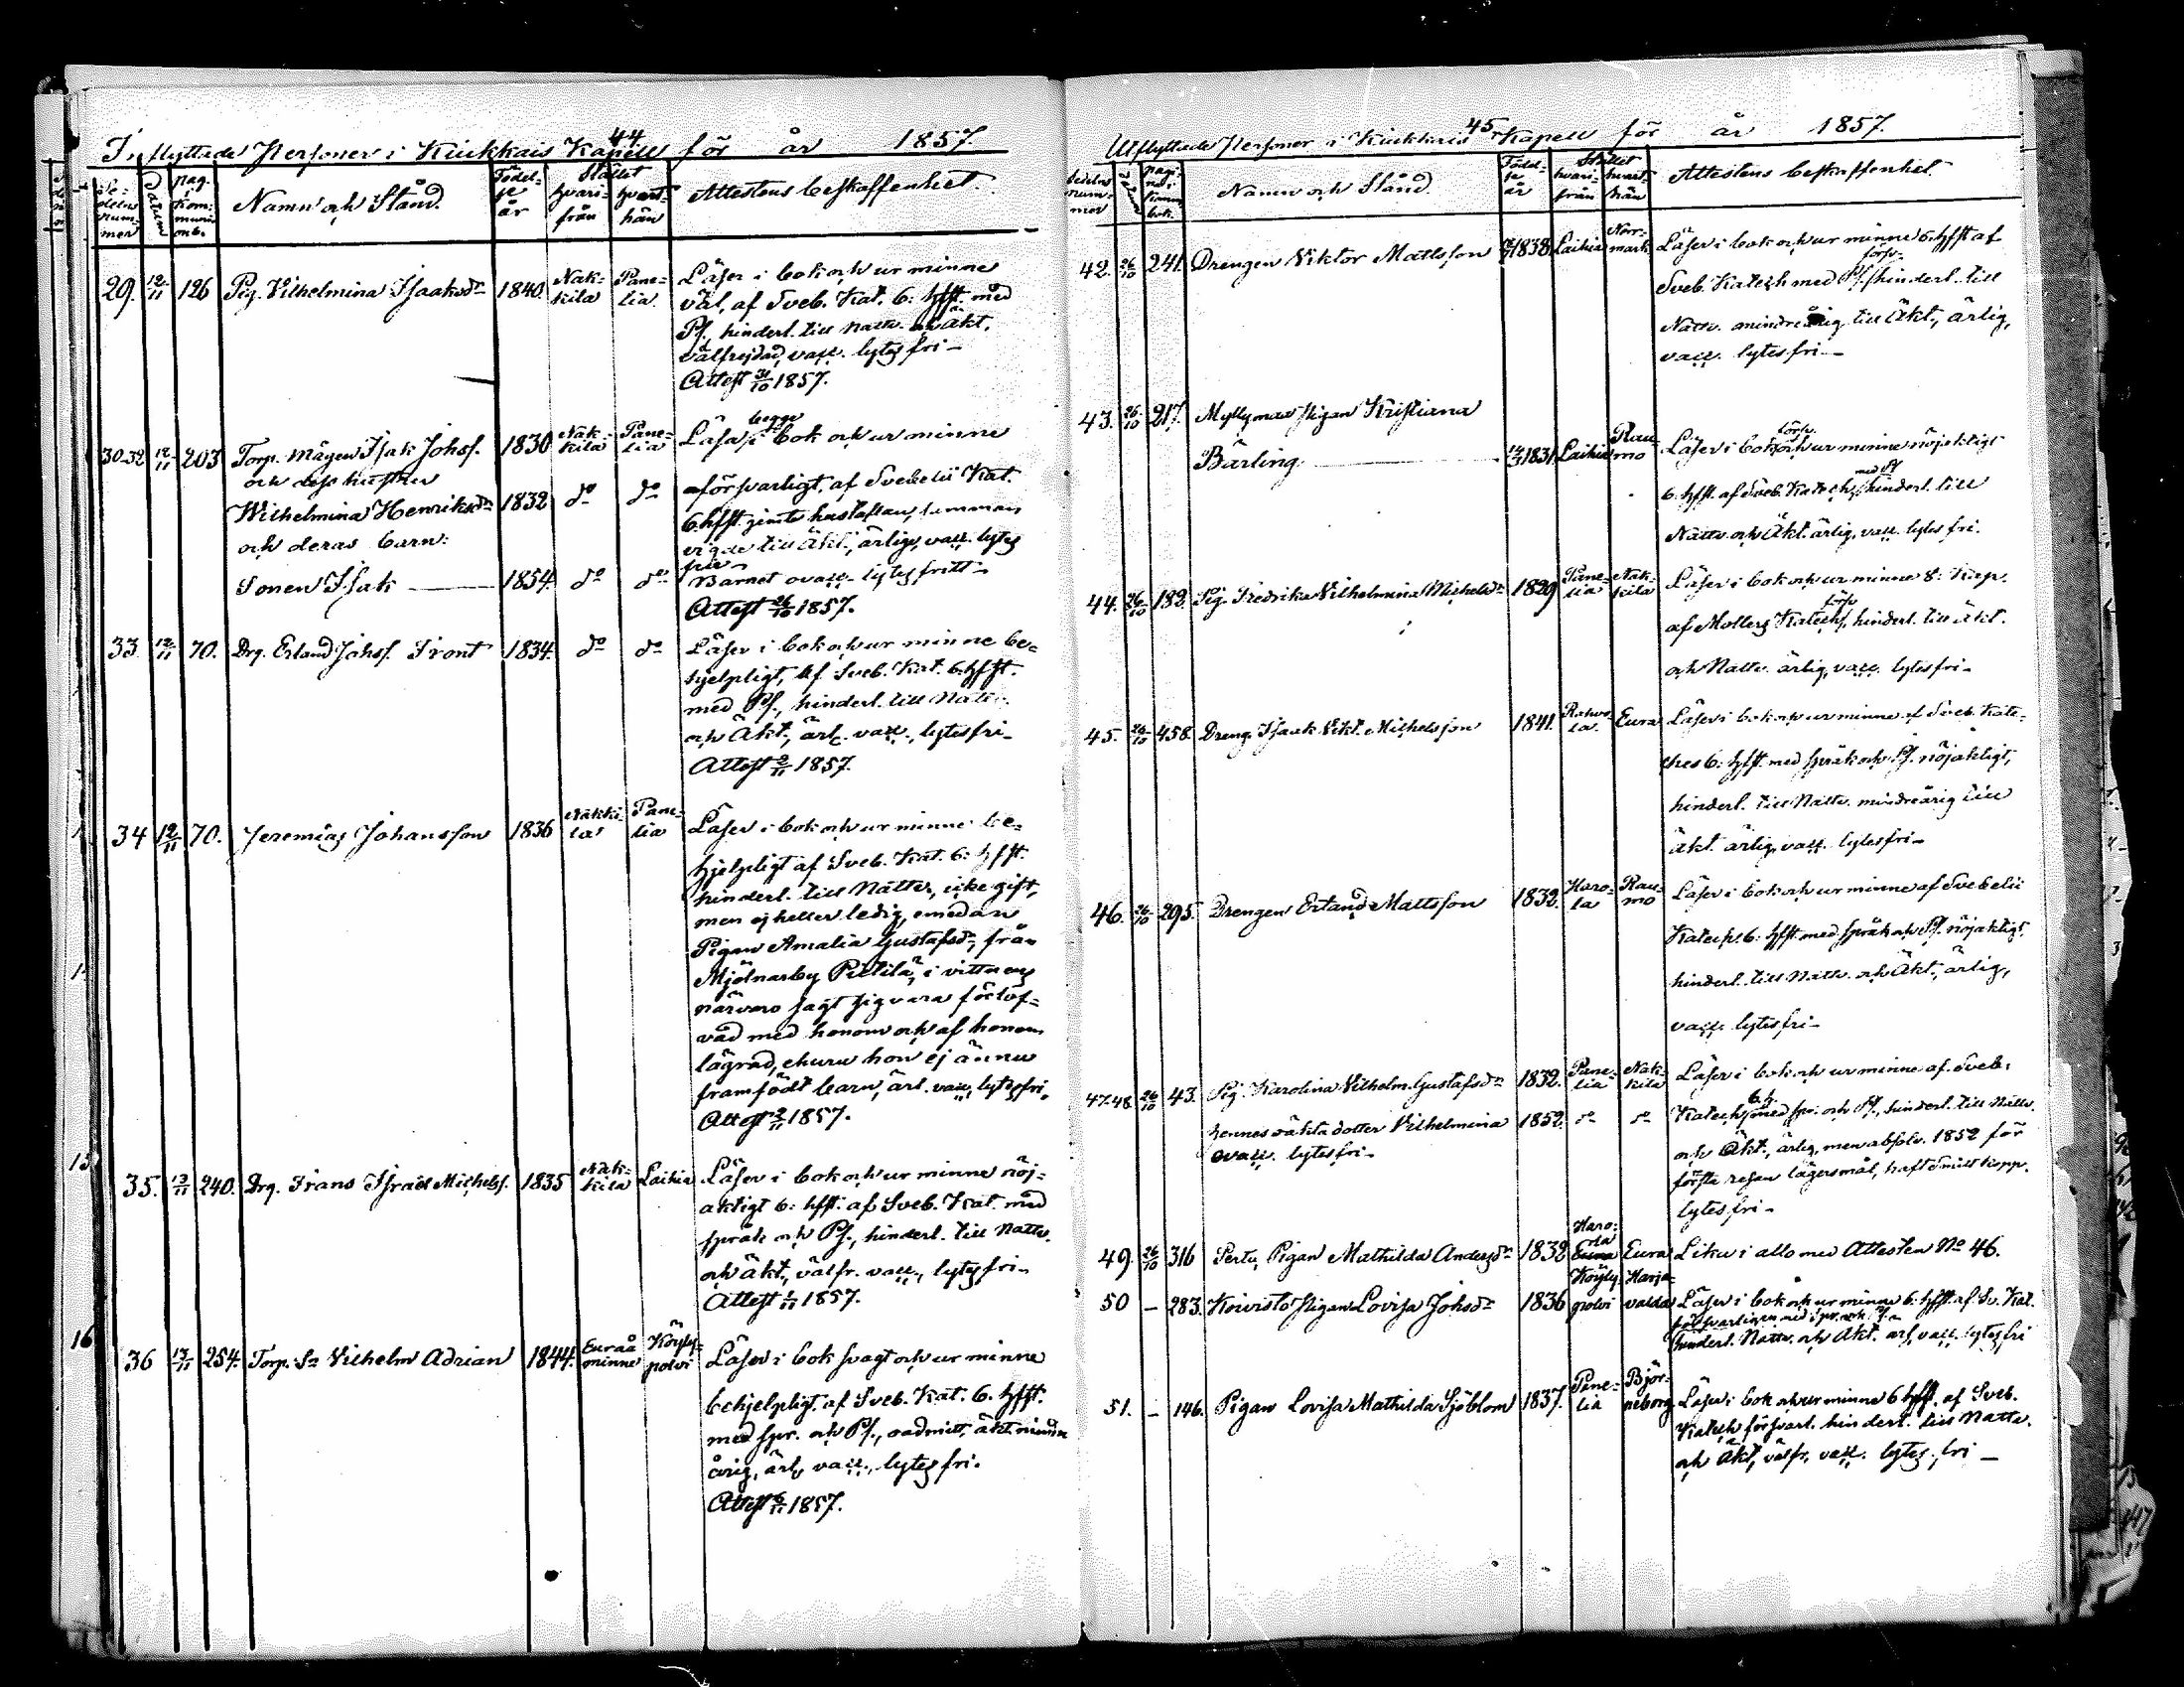 44
Inflyttade Personer i Kiukkais Kapell för år 1857.
Sedelns nummer Datum pag. i kommunionb. Namn och Stånd. Födelse år Stället hvarifrån hvarthän Attestens beskaffenhet.
29. 12/11 126 Pig. Vilhelmina Isaaksdr 1840. Nakkila Panelia Läser i bok och ur minne
väl, af Sveb. Kat. 6: hfst. med
Ps. hinderl. till Nattv. och Äkt.
välfrejdad, vacc. lytesfri –
Attest 31/10 1857.
30-32 12/11 203 Torp. mågen Isak Johss. 1830 Nakkila Panelia Läsa begge i bok och ur minne
och dess hustru
Wilhelmina Henriksdr 1832 do do försvarligt, af Svebelii Kat.
6. hfst. jemte hustaflan, samman
och deras barn:
vigde till Äkt., ärlige, vacc. lytes
frie –
Sonen Isak 1854. do do Barnet ovacc. lytesfritt –
Attest 26/10 1857.
33 12/11 70. Drg. Erland Johss. Front 1834. do do Läser i bok och ur minne be=
hjelpligt, af Sveb. Kat. 6. hfst.
med Ps., hinderl. till Nattv.
och Äkt., ärl. vacc., lytesfri –
Attest 2/11 1857.
34 12/11 70. Jeremias Johansson 1836 Nakkila Panelia Läser i bok och ur minne be=
hjelpligt af Sveb. Kat. 6: hfst.
hinderl. till Nattv., icke gift,
men ej heller ledig, emedan
Pigan Amalia Gustafsdr, från
Mjölnarby Pietilä, i vittnens
närvaro sagt sig vara förlof=
vad med honom och af honom
lägrad, ehuru hon ej ännu
framfödt barn, ärl. vacc. lytesfri.
Attest 2/11 1857.
35. 13/11 240. Drg. Frans Israel Michelss. 1835 Nakkila Laihia Läser i bok och ur minne nöj=
aktigt 6: hfst. af Sveb. Kat. med
språk och Ps., hinderl. till Nattv.
och äkt., välfr. vacc., lytesfri –
Attest 1/11 1857.
36 13/11 254. Torp. Sn Vilhelm Adrian 1844. Euraåminne Köylypolvi Läser i bok svagt och ur minne
behjelpligt. af Sveb. Kat. 6. hfst.
med spr. och Ps., oadmitt., äkt. minder
årig, ärl., vacc., lytesfri.
Attest 6/11 1857.
45
Utflyttade Personer i Kiukkais Kapell för år 1857.
Sedelns nummer Datum pagina i komm. bok. Namn och Stånd. Födelse år Stället hvarifrån hvarthän Attestens beskaffenhet.
42. 26/10 241. Drengen Viktor Mattsson 1838. Laihia Norrmark Läser i bok och ur minne 6: hfst af
Sveb. Katech med Ps. försv. hinderl. till
Nattv. minderårig till Äkt., ärlig,
vacc. lytesfri –
43. 26/10 217. Myllymaa pigan Kristiana
Bärling 1831. Laihia Raumo Läser i bok försv. och ur minne nöjaktigt
6: hfst. af Sveb. Katech med Ps hinderl. till
Nattv. och Äkt. ärlig, vacc. lytesfri.
44. 26/10 182. Pig. Fredrika Vilhelmina Michelsdr 1829 Panelia Nakkila Läser i bok och ur minne 8: Kap.
af Mollers Katech försv, hinderl. till äkt.
och Nattv. ärlig, vacc. lytesfri –
45. 26/10 458. Dreng. Isaak Vikt. Michelsson 1841. Eura Läser i bok och ur minne af Sveb. Kate=
ches 6: hfst. med språk och Ps. nöjaktigt,
hinderl. till Nattv. minderårig till
äkt. ärlig, vacc. lytesfri –
46. 26/10 295. Drengen Erland Mattsson 1832. Harola Raumo Läser i bok och ur minne af Svebelii
Katechs 6: hfst. med språk och Ps. nöjaktigt,
hinderl. till Nattv. och Äkt., ärlig,
vacc. lytesfri –
47.48. 26/10 43. Pig. Karolina Vilhelm. Gustafsdr 1832. Panelia Nakkila Läser i bok och ur minne af Sveb.
hennes oäkta dotter Vilhelmina 1852. do do Katech 6 h. med spr. och Ps., hinderl. till Nattv.
ovacc. lytesfri –
och Äkt., ärlig, men absolv. 1852 för
första resan lägersmål, haft Småttkopp.
lytesfri –
49. 26/10 316 Perttu Pigan Mathilda Andersdr 1832 Harola Eura Lika i allo med Attesten No 46.
50 – 283. Koivisto pigan Lovisa Johsdr 1836 Köylypolvi Harjavalda Läser i bok och ur minne 6: hfst. af Sv. Kat.
försvarligen med spr. och Ps.
hinderl. Nattv. och Äkt. ärl. vacc. lytesfri
51. – 146. Pigan Lovisa Mathilda Sjöblom 1837. Panelia Björneborg Läser i bok och ur minne 6 hfst. af Sveb.
Katech försvarl. hinderl. till Nattv.
och Äkt., välfr. vacc. lytesfri –